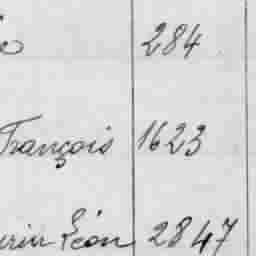 284
François 1623
Léon 2847